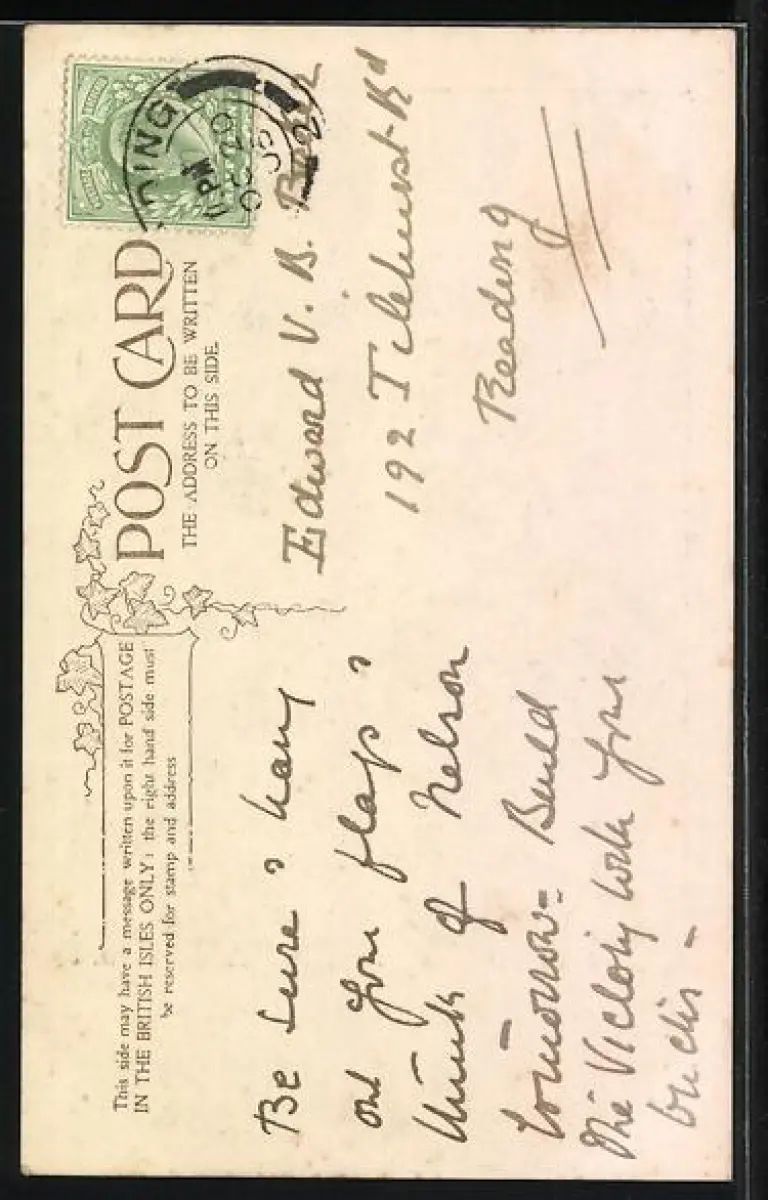 This side may have a message written upon it for POSTAGE
IN THE BRITISH ISLES ONLY: the right hand side must
be reserved for stamp and address
POST CARD
THE ADDRESS TO BE WRITTEN
ON THIS SIDE.
DING
PM
OC 20
05
2
Be sure & hang
out your flag &
think of Nelson
tomorrow = Build
the Victory with your
bricks -
Edward V. B.
192 Tilehurst Rd
Reading